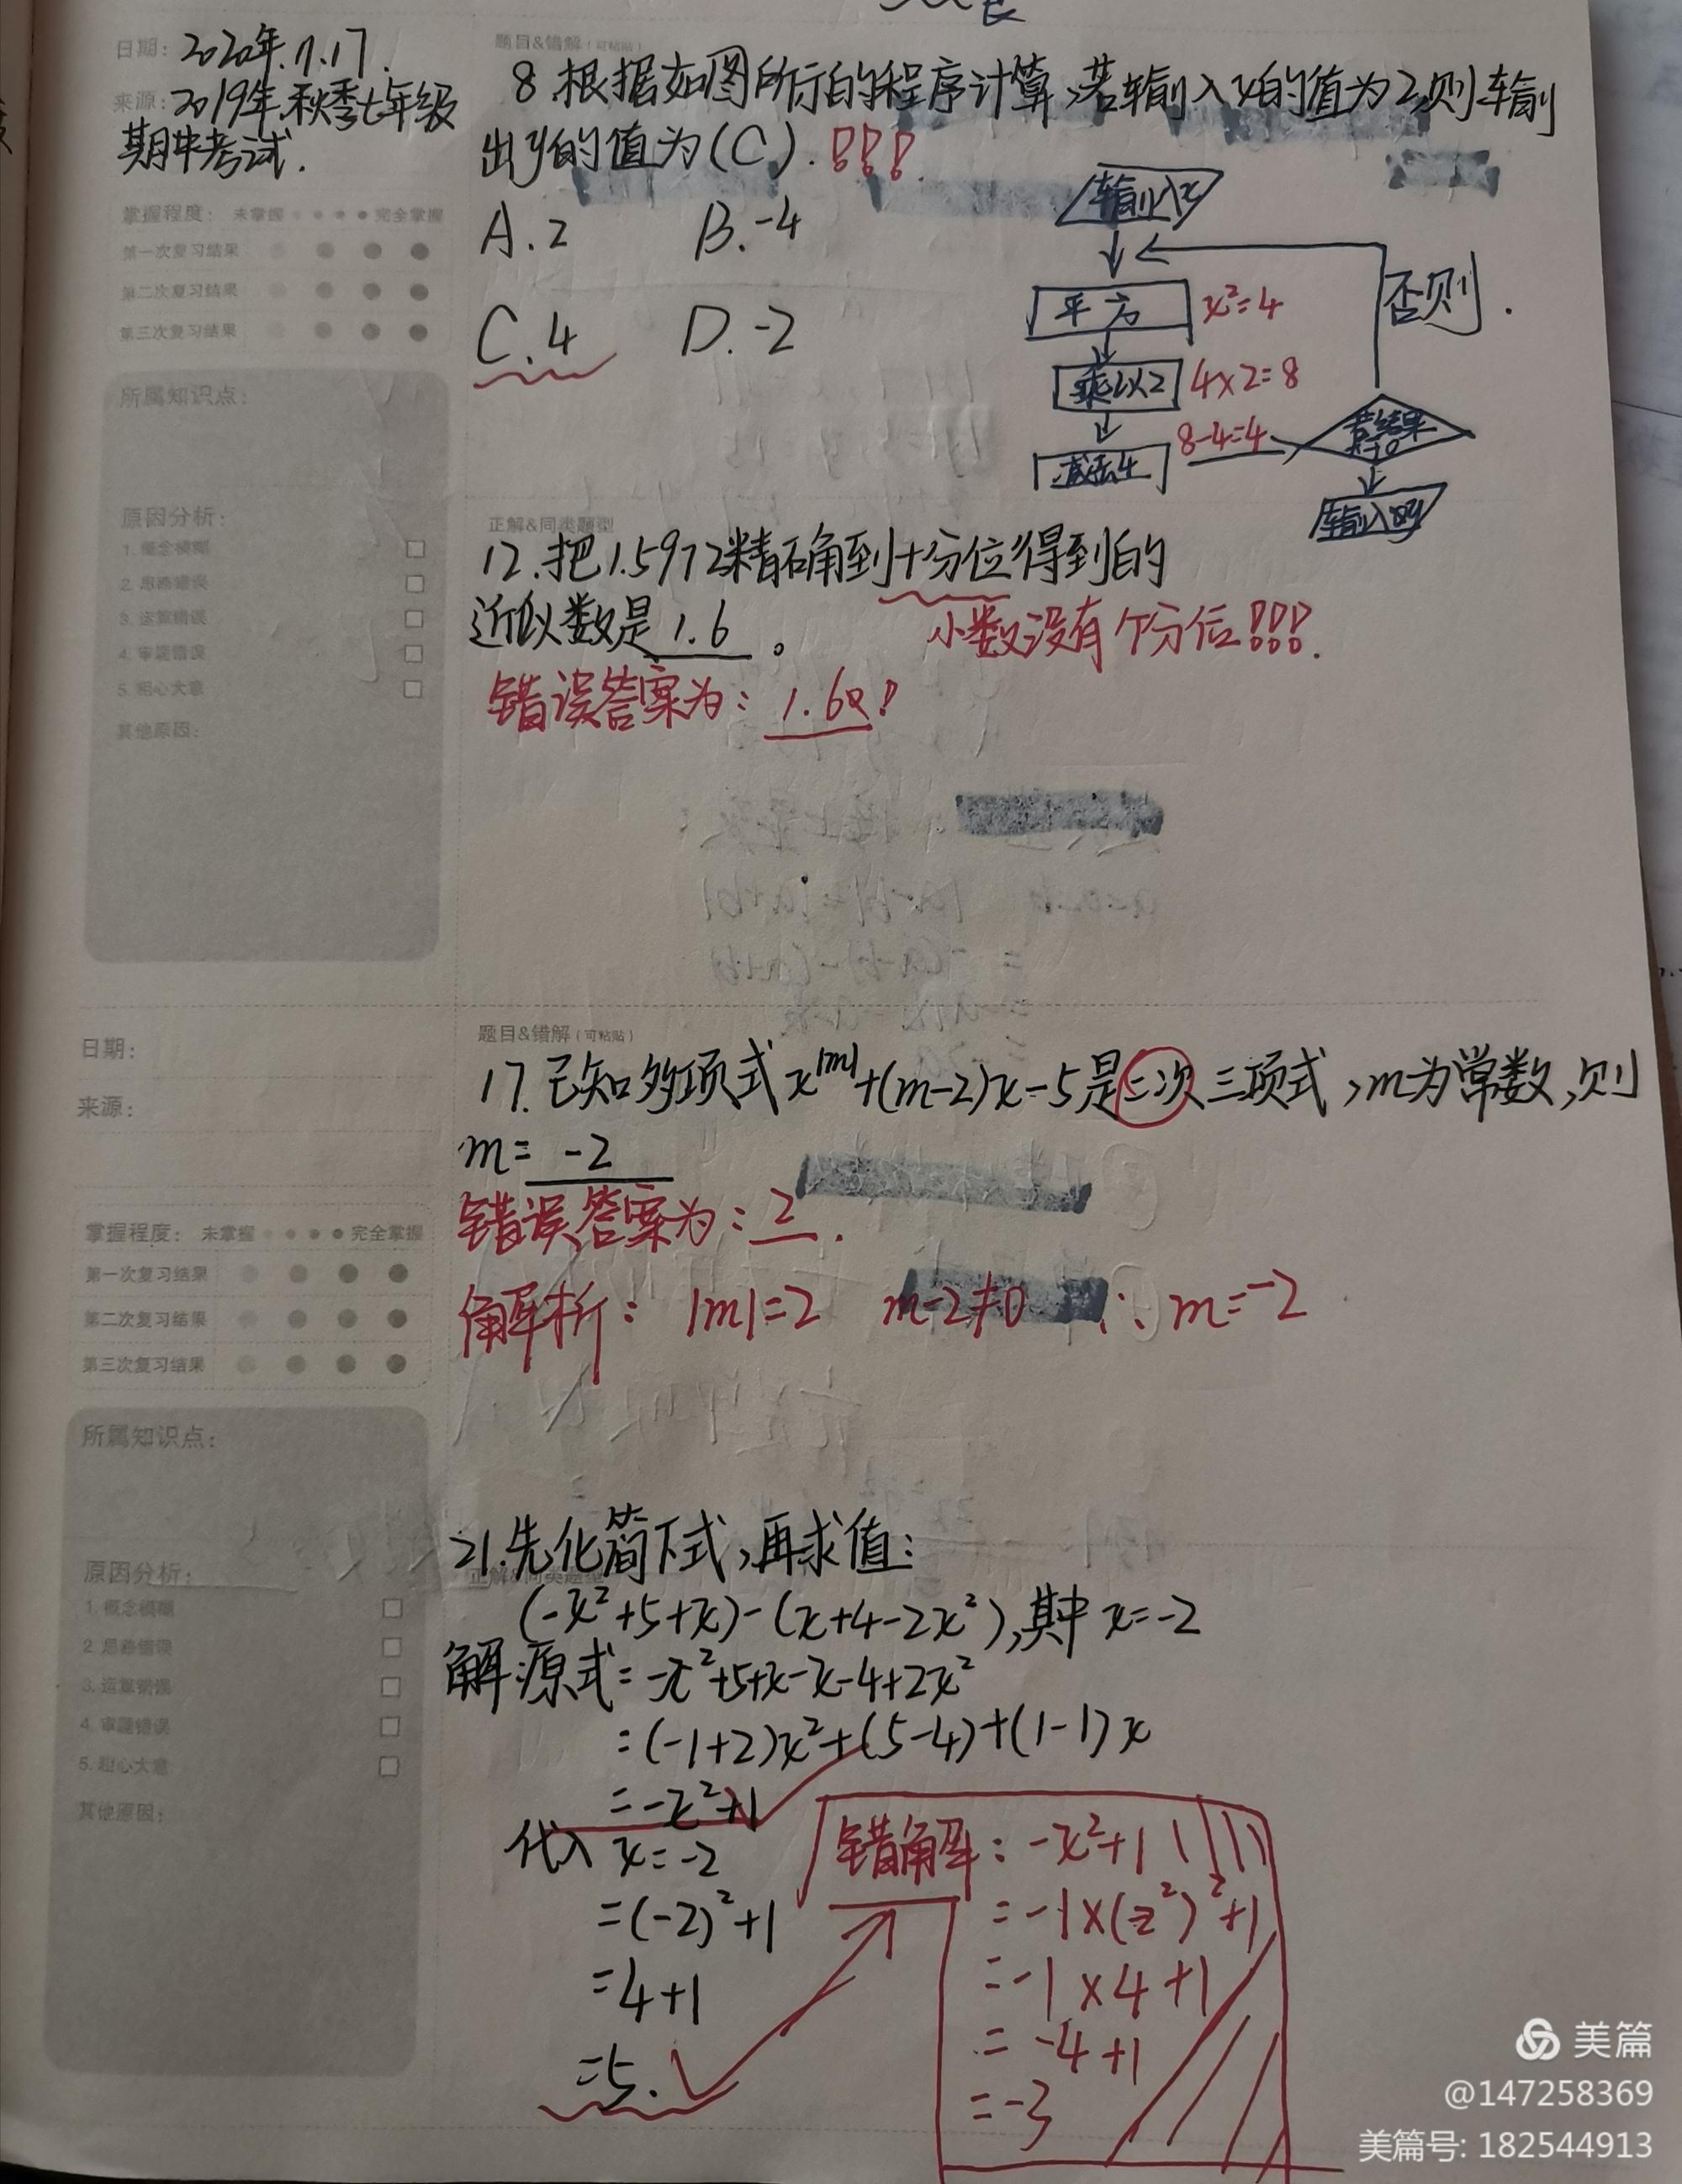 日期：2020年.11.17.
来源：2019年.秋季七年级
期中考试.
掌握程度： 未掌握 完全掌握
第一次复习结果
第二次复习结果
第三次复习结果
所属知识点：
原因分析：
1. 概念模糊
2. 思路错误
3. 运算错误
4. 审题错误
5. 粗心大意
其他原因：
题目&错解（可粘贴）
8.根据如图所示的程序计算,若输入x的值为2,则输
出y的值为(C). !!!
A.2 B.-4
C.4 D.-2
输入x
平方 x²=4
否则.
乘以2 4×2=8
减去4 8-4=4
若结果
输入出y
正解&同类题型
12.把1.5972精确到十分位得到的
近似数是 1.6 。
小数没有个分位!!!.
错误答案为：1.60!
日期：
来源：
掌握程度： 未掌握 完全掌握
第一次复习结果
第二次复习结果
第三次复习结果
所属知识点：
原因分析：
1. 概念模糊
2. 思路错误
3. 运算错误
4. 审题错误
5. 粗心大意
其他原因：
题目&错解（可粘贴）
17.已知多项式x^|m|+(m-2)x-5是二次三项式,m为常数,则
m= -2
错误答案为：2.
解析： |m|=2 m-2≠0 ∴ m=-2
21.先化简下式,再求值：
正解&同类题型
(-x²+5+x)-(x+4-2x²),其中x=-2
解:源式=-x²+5+x-x-4+2x²
=(-1+2)x²+(5-4)+(1-1)x
=-x²+1
代入 x=-2
=(-2)²+1
=4+1
=5.
错解：-x²+1
=-1×4+1
=-4+1
=-3
美篇
@147258369
美篇号: 182544913